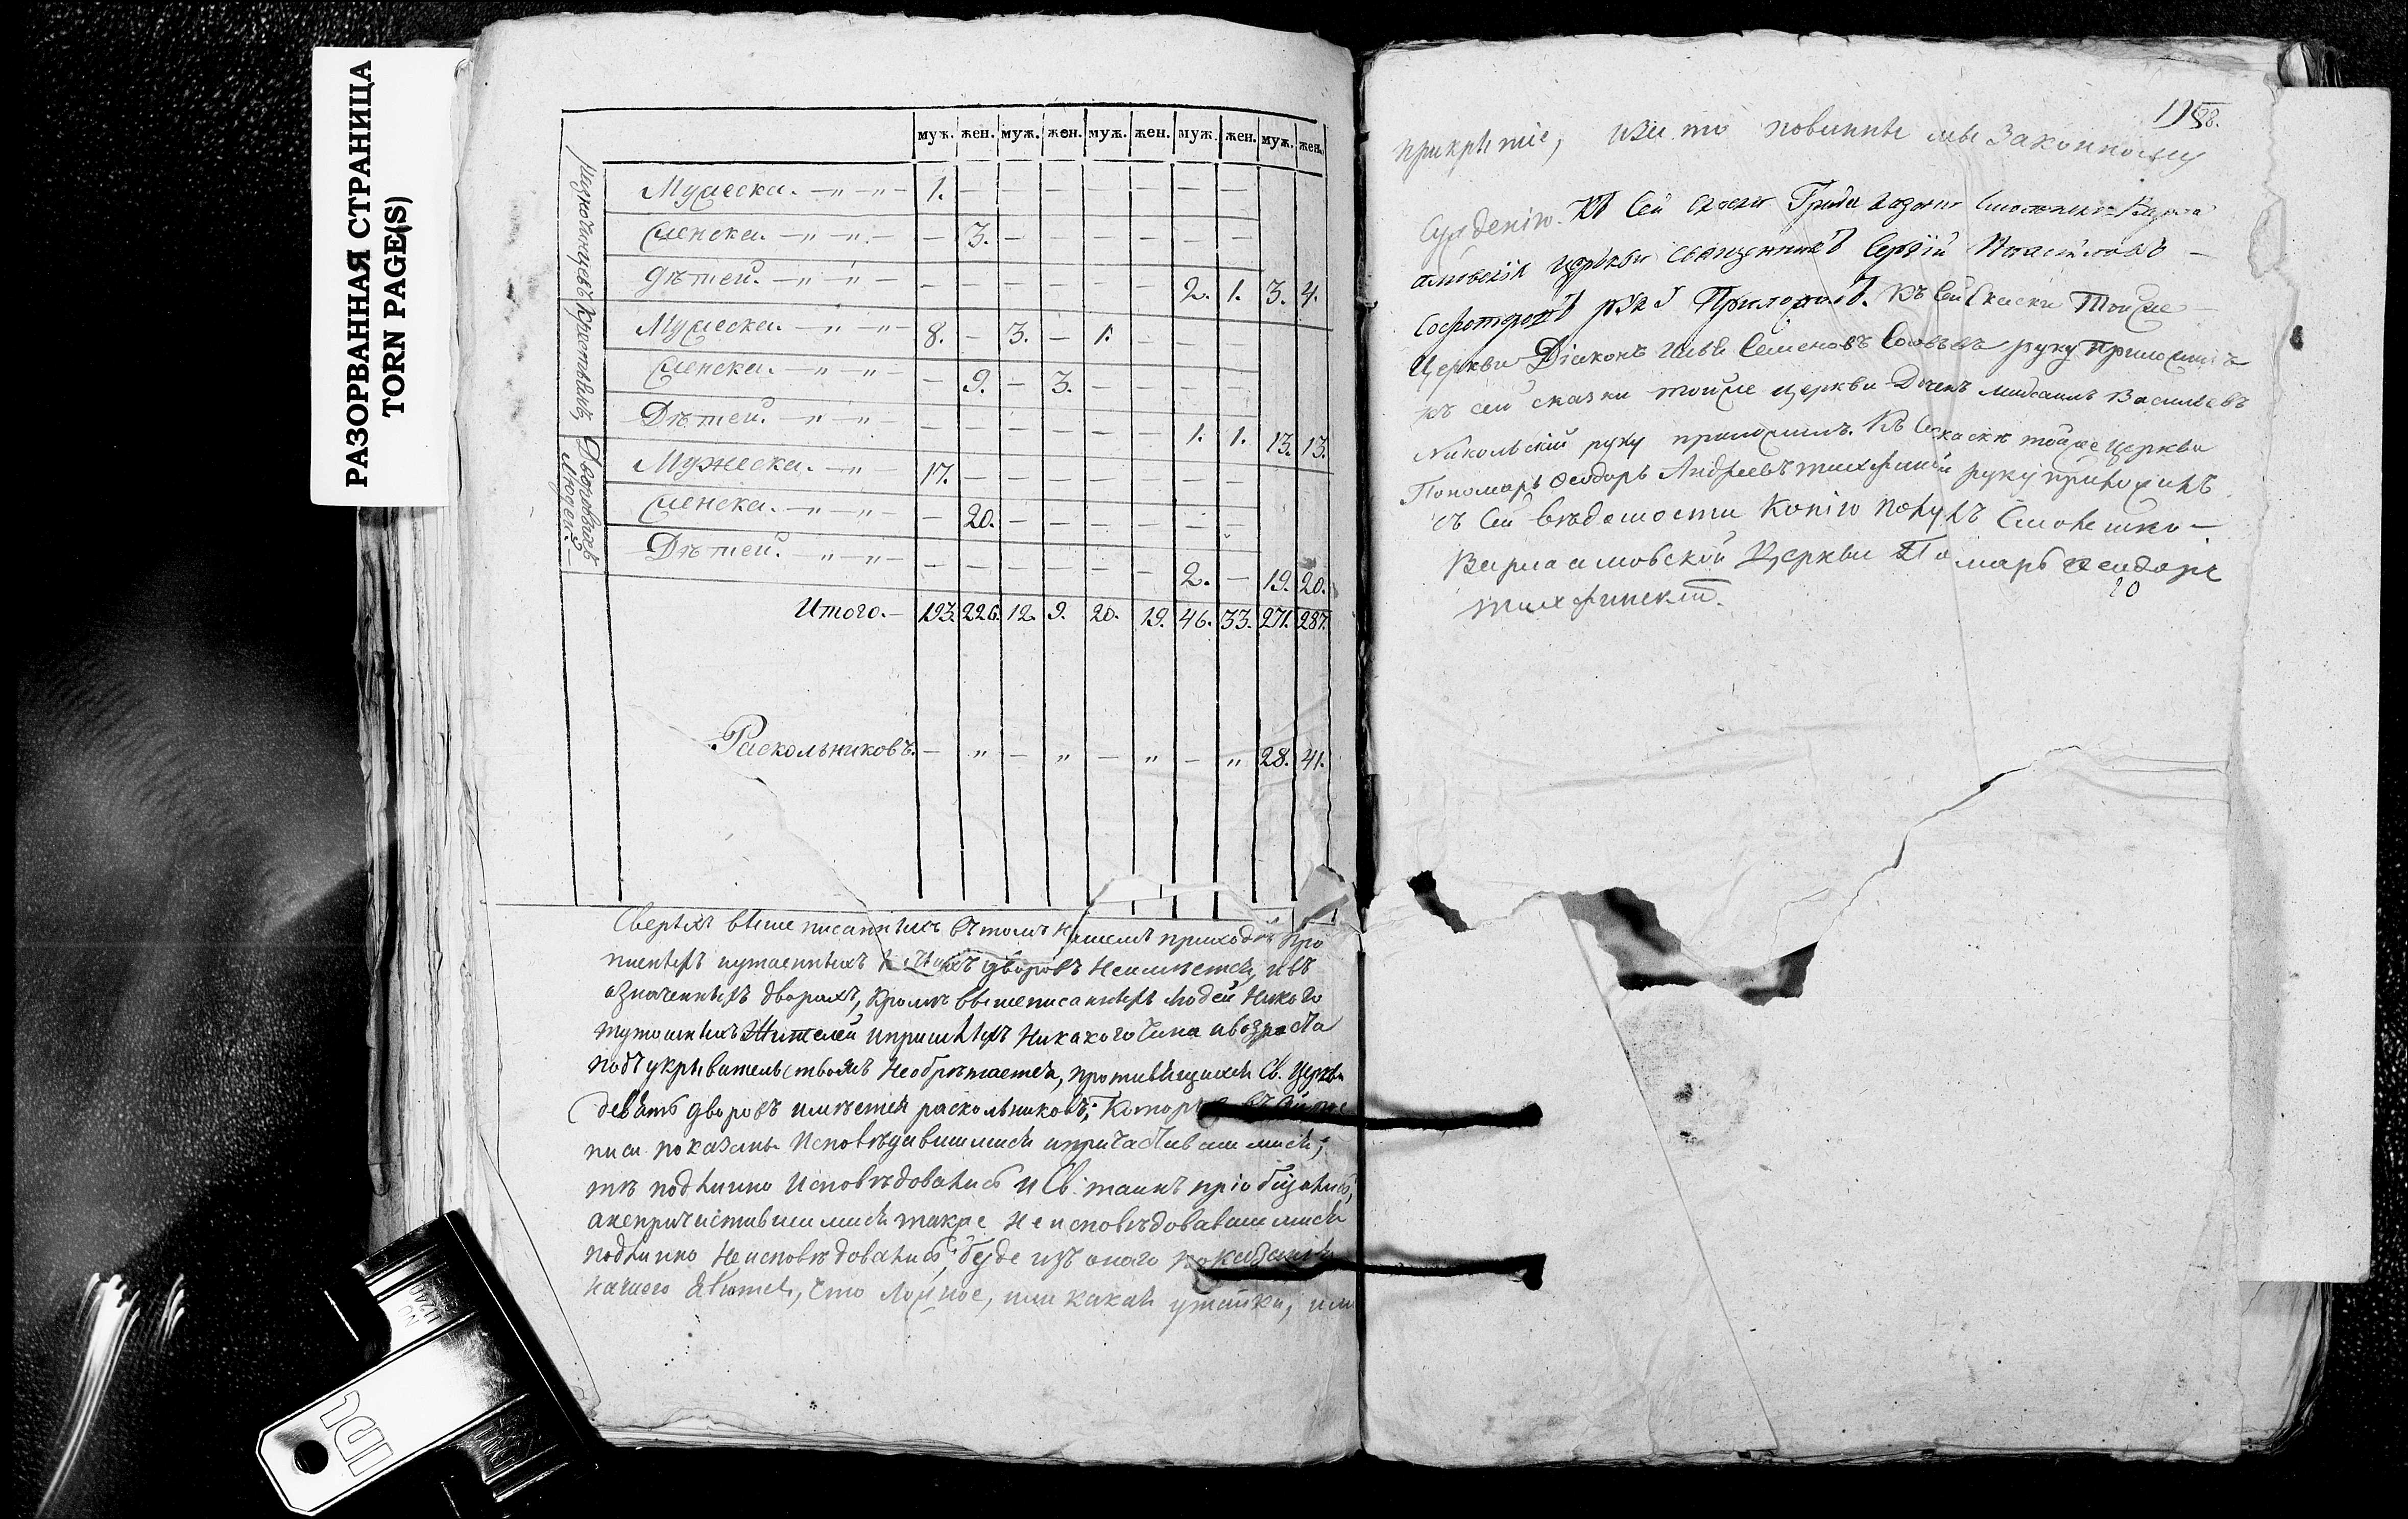 РАЗОРВАННАЯ СТРАНИЦА
TORN PAGE(S)
муж. жен. муж. жен. муж. жен. муж. жен. муж. жен.
Мужеска. — „ — „ — 1. — — — — — — —
Женска. — „ — „ — — 3. — — — —
Дѣтей. — „ — „ — — — — — — — 2. 1. 3. 4.
Крестьянъ,
Мужеска. — „ — „ — 8. — 3. — 1. — — —
Женска. — „ — „ — — 9. — 3. — — — —
Дѣтей. — „ — „ — — — — — — — 1. 1. 13. 13.
Дворовыхъ
Людей. —
Мужеска. — „ — 17. — — — — — — —
Женска. — „ — „ — — 20. — — — — — —
Дѣтей. — „ — „ — — — — — — — 2. — 19. 20.
Итого. — 193. 226. 12. 9. 20. 19. 46. 33. 271. 287.
Раскольниковъ. — „ — „ — „ — „ 28. 41.
Сверьхъ выше писанныхъ въ томъ нашемъ приходѣ про
писныхъ и утаенныхъ дворовъ неимѣется, и въ
означенныхъ дворахъ, кромѣ вышеписанныхъ людей никого
тутошныхъ Жителей и пришлыхъ никакого чина и возраста
подъ укрывательствомъ необрѣтается, противящихся Св. Церкви
девять дворовъ имѣется раскольниковъ; Которыя
писи показаны исповѣдавшимися и причастившимися;
тѣ подлинно исповѣдовались и Св. таинъ пріобщались,
а непричастившимися также и неисповѣдовавшимися
подлинно неисповѣдовались, буде изъ онаго показанія
нашего явится, что ложное, или какая утайка, или
198.
прикрытіе, за то повинны мы Законному
Сужденію. Къ Сей
церкви священникъ Сергій
руку Приложилъ. Къ Сей Скаски Тойже
Церкви Діаконъ Семеновъ руку приложилъ
къ сей сказки тойже церкви Дьячекъ Михаилъ Васильевъ
Никольскій руку приложилъ. Къ Се скаскѣ тойже Церкви
Пономарь Феодоръ Андреевъ руку приложилъ
съ Сей вѣдомости Копію
Варлаамовской Церкви
20